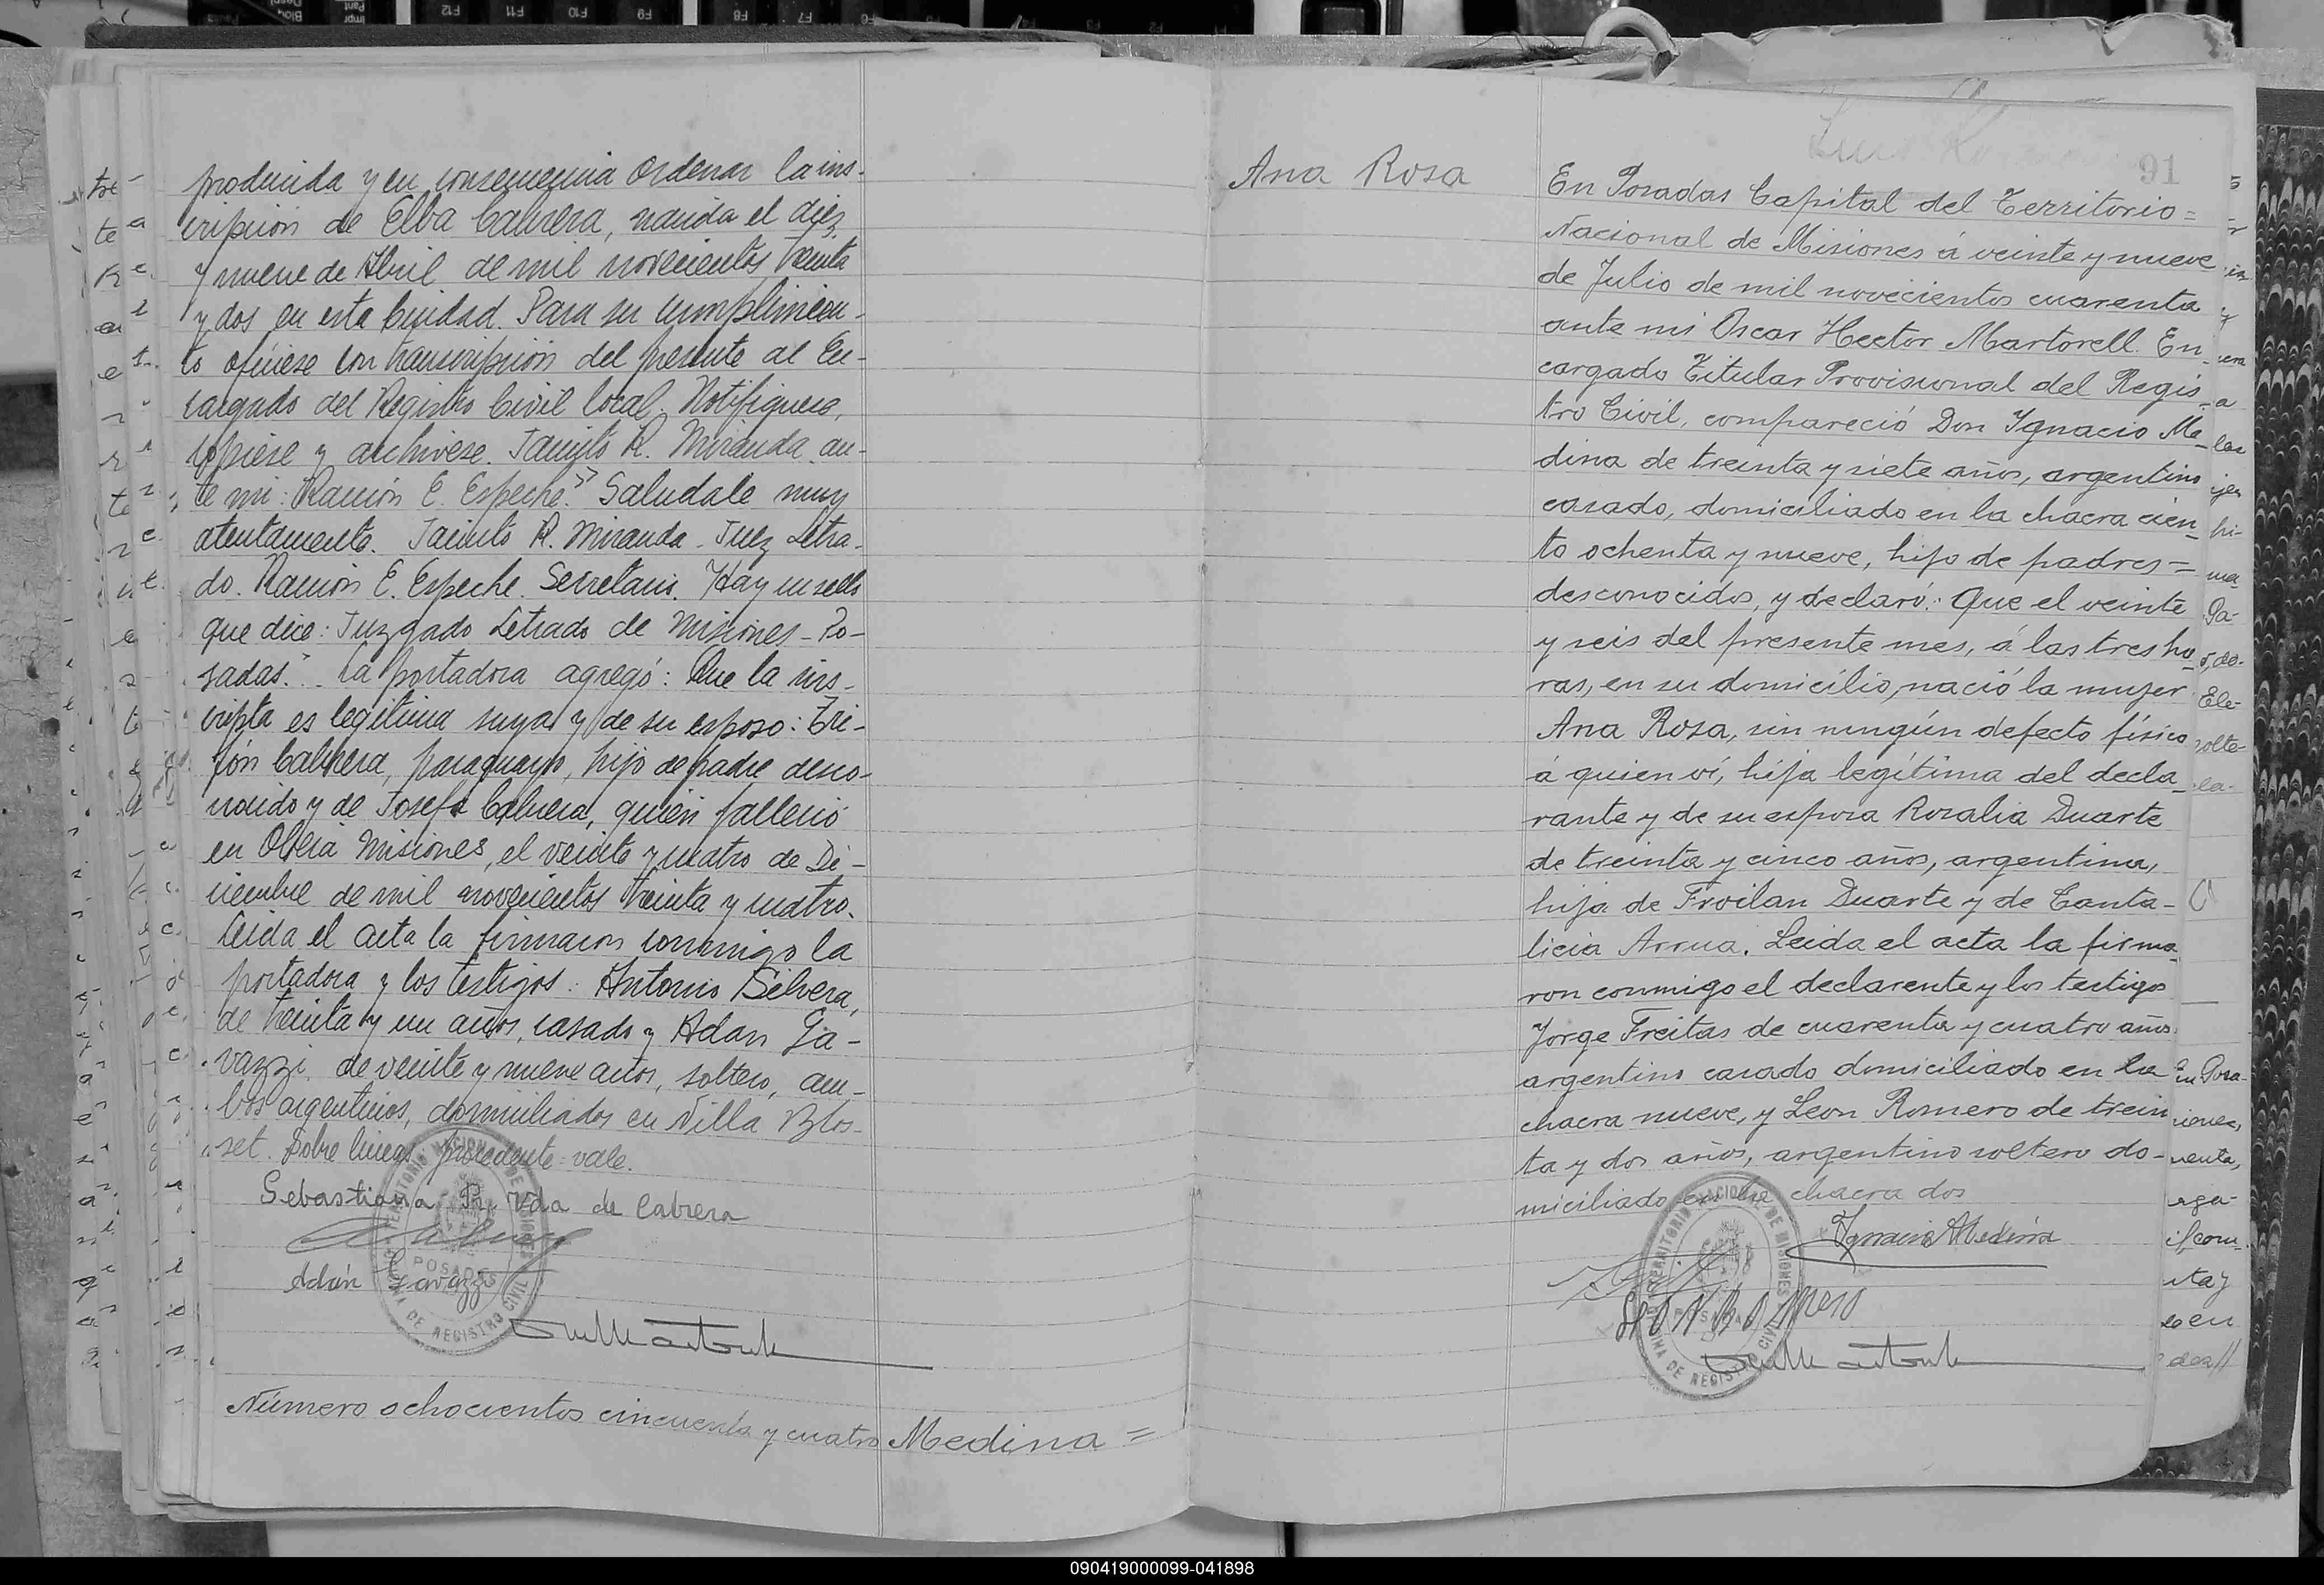 producida y en consecuencia ordenar la ins-
cripción de Elba Cabrera, nacida el diez
y nueve de Abril de mil novecientos treinta
y dos en esta Ciudad. Para su cumplimien-
to ofíciese con transcripción del presente al En-
cargado del Registro Civil local. Notifíquese,
cópiese y archívese. Jacinto R. Miranda. an-
te mi: Ramón E. Espeche." Saludale muy
atentamente. Jacinto R. Miranda - Juez Letra-
do. Ramón E. Espeche. Secretario. Hay un sello
que dice: Juzgado Letrado de Misiones - Po-
sadas." La portadora agregó: Que la ins-
cripta es legítima suya y de su esposo: Tri-
fón Cabrera, paraguayo, hijo de padre desco-
nocido y de Josefa Cabrera, quien falleció
en Oberá Misiones, el veinte y cuatro de Di-
ciembre de mil novecientos treinta y cuatro.
Leída el acta la firmaron conmigo la
portadora y los testigos: Antonio Silvera,
de treinta y un años, casado y Adan Ga-
vazzi, de veinte y nueve años, soltero, am-
bos argentinos, domiciliados en Villa Blos-
set. Sobre líneas: precedente = vale.
Sebastiana R. Vda de Cabrera
Adán Gavazzi
TERRITORIO NACIONAL DE MISIONES
POSADAS
OFICINA DE REGISTRO CIVIL
Número ochocientos cincuenta y cuatro Medina =
91
Ana Rosa
En Posadas Capital del Territorio =
Nacional de Misiones á veinte y nueve
de Julio de mil novecientos cuarenta
ante mi Oscar Hector Martorell. En-
cargado Titular Provisional del Regis-
tro Civil, compareció Don Ygnacio Me-
dina de treinta y siete años, argentino
casado, domiciliado en la chacra cien-
to ochenta y nueve, hijo de padres =
desconocidos, y declaró: Que el veinte
y seis del presente mes, á las tres ho-
ras, en su domicilio, nació la mujer
Ana Rosa, sin ningún defecto físico
á quien ví, hija legítima del decla-
rante y de su esposa Rosalia Duarte
de treinta y cinco años, argentina,
hija de Froilan Duarte y de Canta-
licia Arrua. Leida el acta la firma-
ron conmigo el declarente y los testigos
Jorge Freitas de cuarenta y cuatro años
argentino casado domiciliado en la
chacra nueve, y Leon Romero de trein
ta y dos años, argentino soltero do-
miciliado en la chacra dos
Ygnacio Medina
LeoN Romero
TERRITORIO NACIONAL DE MISIONES
POSADAS
OFICINA DE REGISTRO CIVIL
090419000099-041898